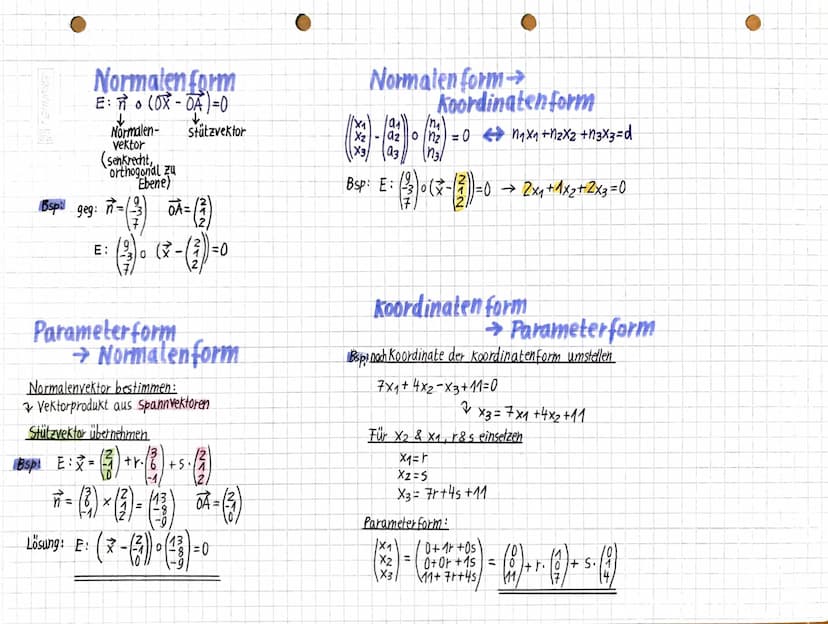 Normalenform
E: n⃗ ∘ (OX⃗ - OA⃗) = 0
↓ ↓
Normalenvektor Stützvektor
(senkrecht,
orthogonal zu
Ebene)
Bsp: geg: n⃗ = (9 -3 7) OA⃗ = (2 1 2)
E: (9 -3 7) ∘ (x⃗ - (2 1 2)) = 0
Normalenform →
Koordinatenform
((x1 x2 x3) - (a1 a2 a3)) ∘ (n1 n2 n3) = 0 ⇔ n1x1 + n2x2 + n3x3 = d
Bsp: E: (9 -3 7) ∘ (x⃗ - (2 1 2)) = 0 → 2x1 + 1x2 + 2x3 = 0
Parameterform
→ Normalenform
Normalenvektor bestimmen:
↴ Vektorprodukt aus Spannvektoren
Stützvektor übernehmen
Bsp: E: x⃗ = (2 -1 0) + r · (3 6 -1) + s · (2 1 2)
n⃗ = (3 6 -1) × (2 1 2) = (13 -8 -9) OA⃗ = (2 -1 0)
Lösung: E: (x⃗ - (2 -1 0)) ∘ (13 -8 -9) = 0
Koordinatenform
→ Parameterform
Bsp: nach Koordinate der Koordinatenform umstellen
7x1 + 4x2 - x3 + 11 = 0
↴ x3 = 7x1 + 4x2 + 11
Für x2 & x1, r & s einsetzen
x1 = r
x2 = s
x3 = 7r + 4s + 11
Parameterform:
(x1 x2 x3) = (0 + 1r + 0s 0 + 0r + 1s 11 + 7r + 4s) = (0 0 11) + r · (1 0 7) + s · (0 1 4)